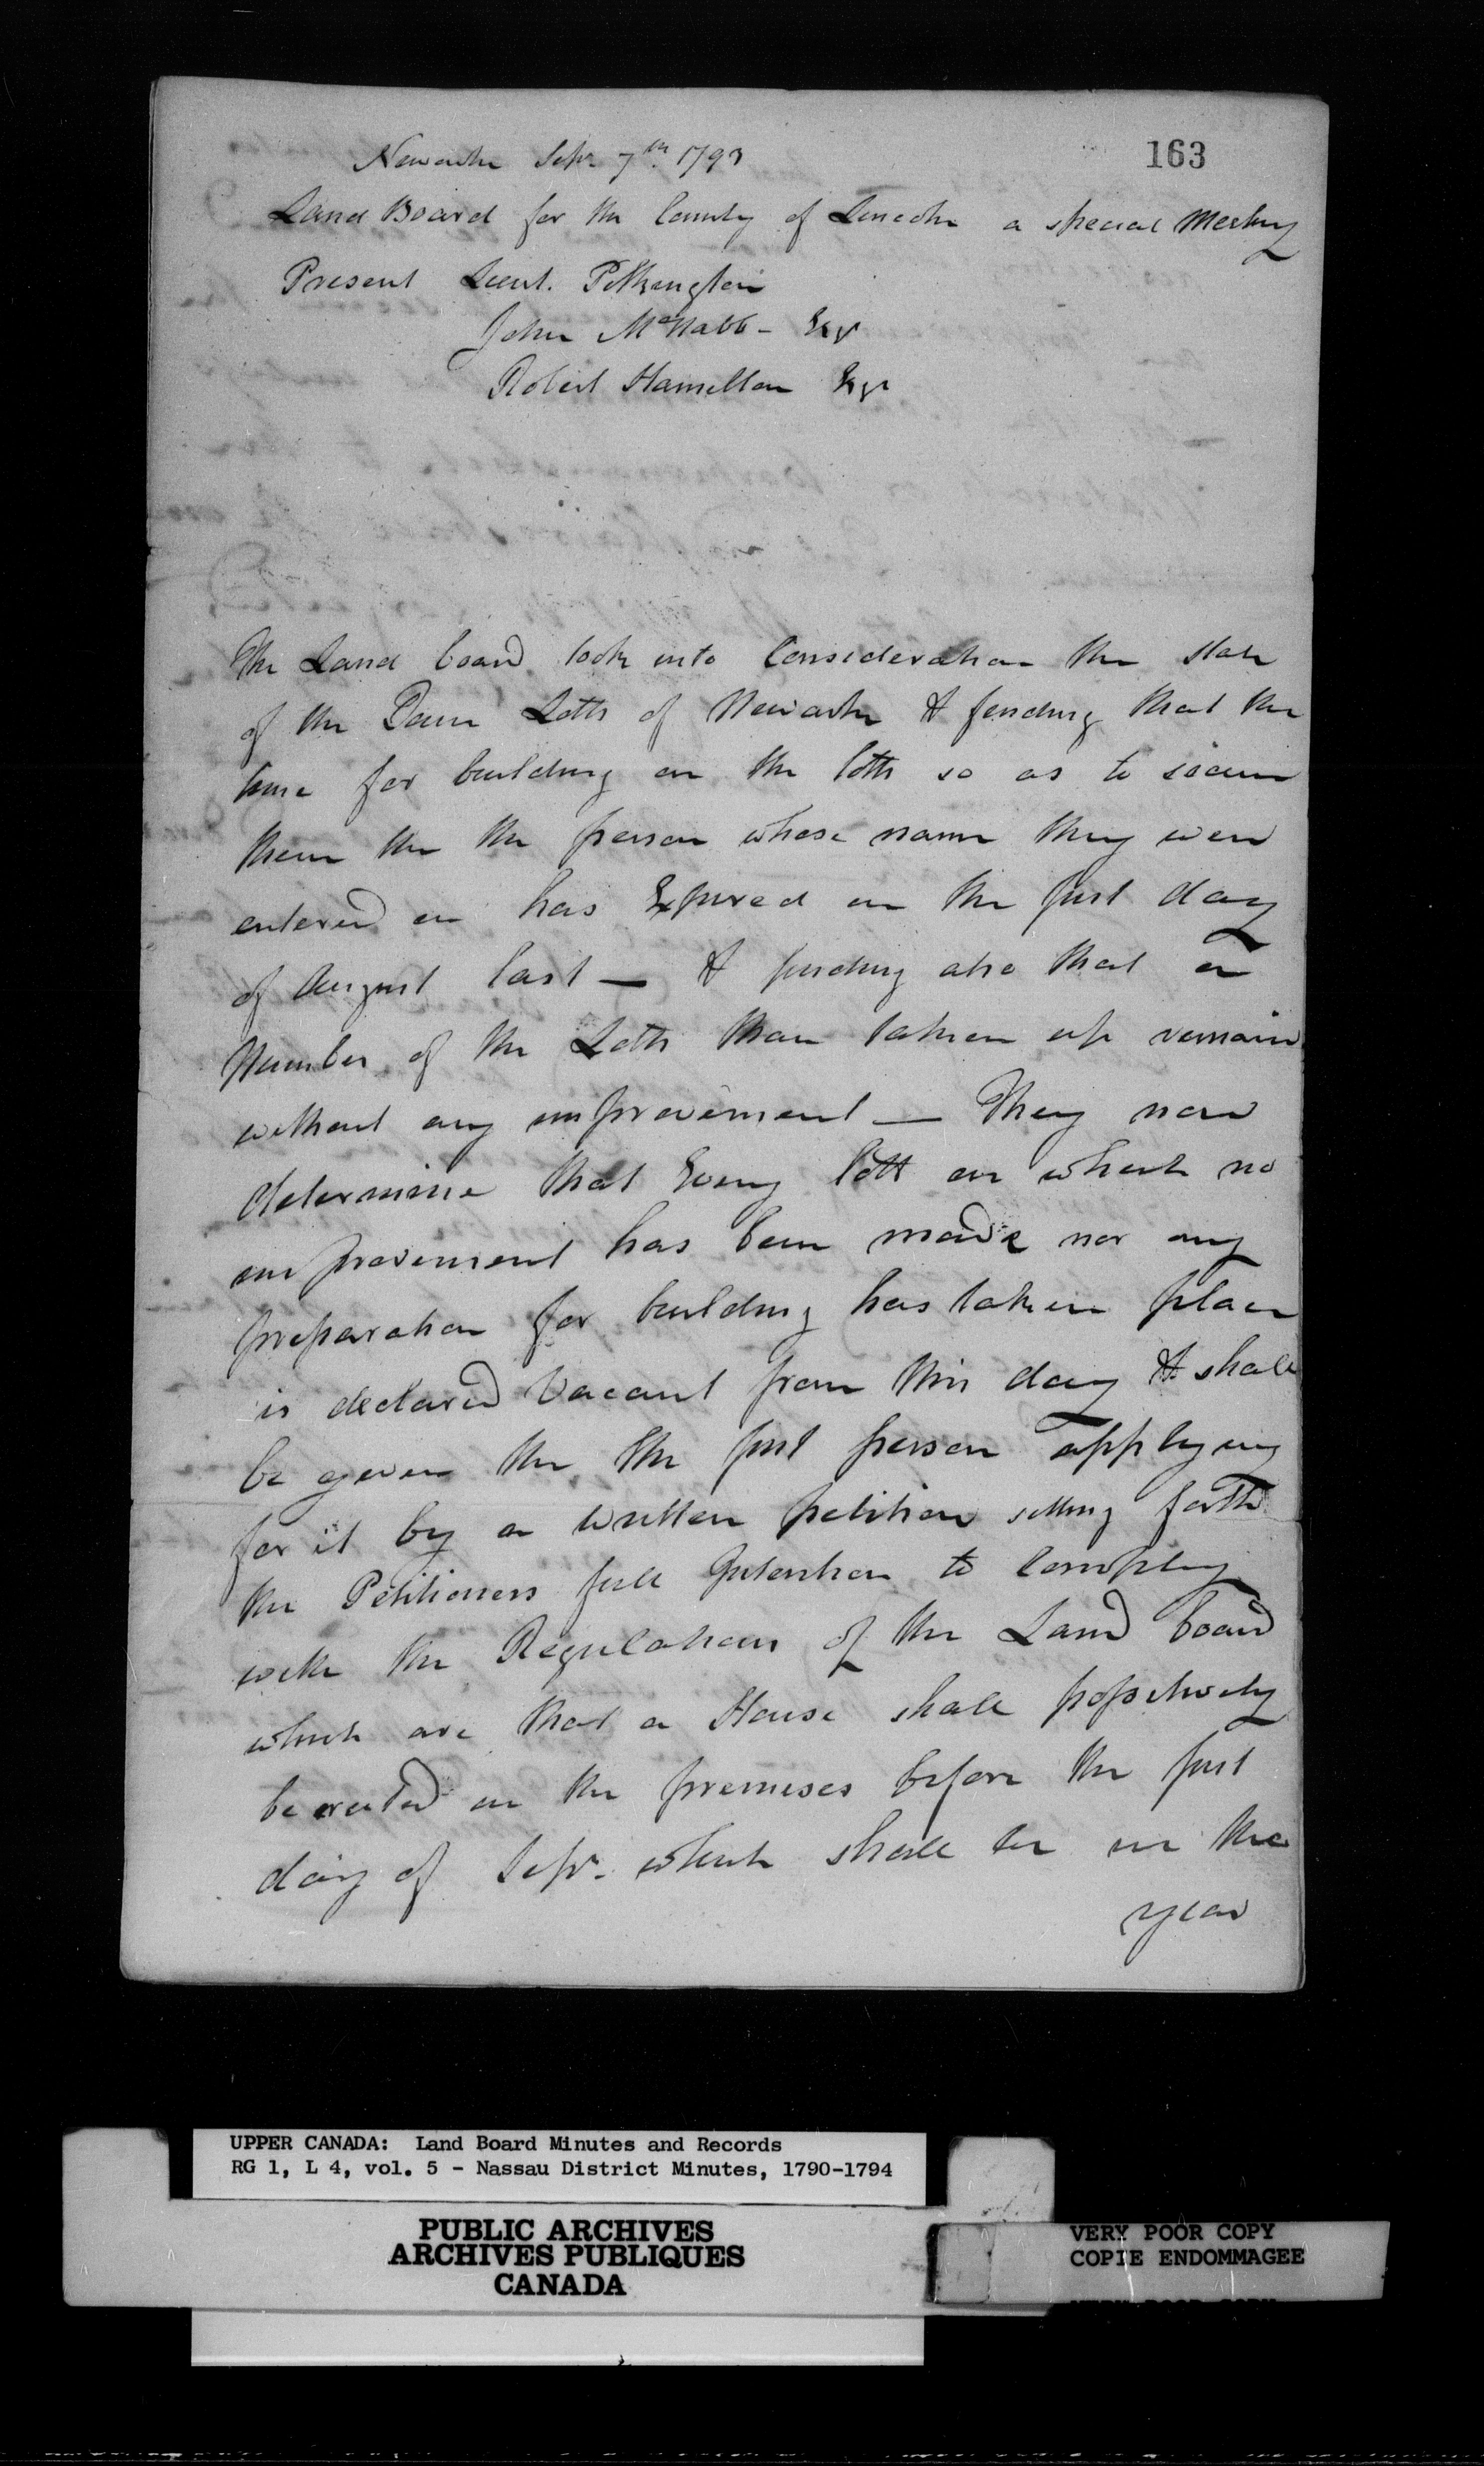 163
Newark Sepr. 7th. 1793
Land Board for the County of Lincoln a special Meeting
Present Lieut. Pilkington
John McNabb - Esqr
Robert Hamilton Esqr
The Land board took into Consideration the State
of the Town Lotts of Newark & finding that the
time for building on the lotts so as to secure
them the the person whose name they were
entered in has Expired on the first day
of August last — & finding also that a
Number of the Lotts than taken up remain
without any improvement — They now
determine that Every lott on which no
improvement has been made nor any
preparation for building has taken place
is declared Vacant from this day & shall
be given the the first person applying
for it by a written petition setting forth
the Petitioners full Intention to Comply
with the Regulations of the Land board
which are that a House shall possitively
be erected on the premises before the first
day of Sepr. which shall be in the
year
UPPER CANADA: Land Board Minutes and Records
RG 1, L 4, vol. 5 - Nassau District Minutes, 1790-1794
PUBLIC ARCHIVES
ARCHIVES PUBLIQUES
CANADA
VERY POOR COPY
COPIE ENDOMMAGEE
VERY POOR COPY